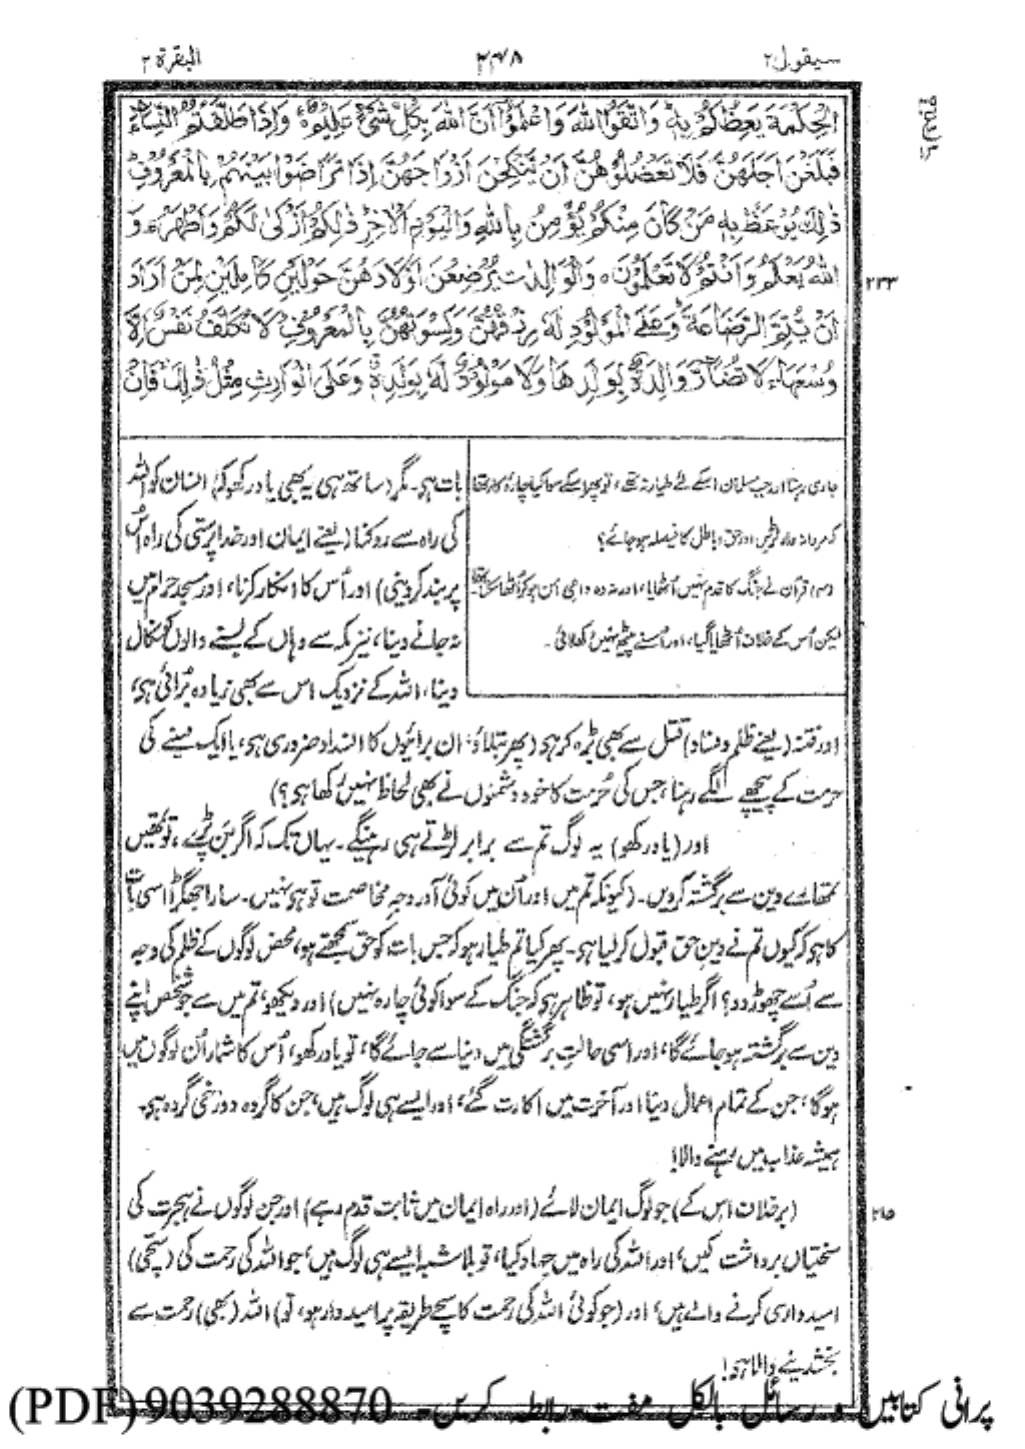 سیقول ۲
۲۴۸
البقرة ۲
الْحِكْمَةِ يَعِظُكُمْ بِهٖ وَاتَّقُوا اللّٰهَ وَاعْلَمُوْۤا اَنَّ اللّٰهَ بِكُلِّ شَیْءٍ عَلِیْمٌ وَاِذَا طَلَّقْتُمُ النِّسَآءَ
فَبَلَغْنَ اَجَلَهُنَّ فَلَا تَعْضُلُوْهُنَّ اَنْ یَّنْكِحْنَ اَزْوَاجَهُنَّ اِذَا تَرَاضَوْا بَیْنَهُمْ بِالْمَعْرُوْفِ
ذٰلِكَ یُوْعَظُ بِهٖ مَنْ كَانَ مِنْكُمْ یُؤْمِنُ بِاللّٰهِ وَالْیَوْمِ الْاٰخِرِ ذٰلِكُمْ اَزْكٰى لَكُمْ وَاَطْهَرُ وَ
اللّٰهُ یَعْلَمُ وَاَنْتُمْ لَا تَعْلَمُوْنَ ○ وَالْوَالِدٰتُ یُرْضِعْنَ اَوْلَادَهُنَّ حَوْلَیْنِ كَامِلَیْنِ لِمَنْ اَرَادَ
۲۳۳
اَنْ یُّتِمَّ الرَّضَاعَةَ وَعَلَى الْمَوْلُوْدِ لَهٗ رِزْقُهُنَّ وَكِسْوَتُهُنَّ بِالْمَعْرُوْفِ لَا تُكَلَّفُ نَفْسٌ اِلَّا
وُسْعَهَا لَا تُضَآرَّ وَالِدَةٌ بِوَلَدِهَا وَلَا مَوْلُوْدٌ لَّهٗ بِوَلَدِهٖ وَعَلَى الْوَارِثِ مِثْلُ ذٰلِكَ فَاِنْ
جاری رہتا اور جب مسلمان اسکے لئے طیار نہ تھے، تو پھر اسکے سوا کیا چارۂ کار تھا
کہ مردانہ وار لڑیں اور حق و باطل کا فیصلہ ہو جائے؟
قرآن نے جنگ کا قدم نہیں اُٹھایا، اور نہ وہ داعی امن ہو کر اُٹھا سکتا تھا۔
لیکن اُس کے خلاف اُٹھایا گیا، اور اُسنے پیٹھ نہیں دکھلائی۔
بات ہی۔ مگر (ساتھ ہی یہ بھی یاد رکھو کہ) انسان کو اللہ
کی راہ سے روکنا (یعنے ایمان اور خدا پرستی کی راہ اُس
پر بند کر دینی) اور اُس کا انکار کرنا، اور مسجد حرام میں
نہ جانے دینا، نیز مکہ سے وہاں کے بسنے والوں کو نکال
دینا، اللہ کے نزدیک اس سے بھی زیادہ بُرائی ہی،
اور فتنہ (یعنے ظلم و فساد) قتل سے بھی بڑہ کر ہی (پھر بتلاؤ، ان برائیوں کا انسداد ضروری ہی، یا ایک مہینے کی
حرمت کے پیچھے لگے رہنا، جس کی حُرمت کا خود دشمنوں نے بھی لحاظ نہیں رکھا ہی؟)
اور (یاد رکھو) یہ لوگ تم سے برابر لڑتے ہی رہینگے۔ یہاں تک کہ اگر بن پڑے، تو تمھیں
تمھارے دین سے برگشتہ کر دیں۔ (کیونکہ تم میں اور اُن میں کوئی اَور وجہِ مخاصمت تو ہی نہیں۔ سارا جھگڑا اسی بات
کا ہی کہ کیوں تم نے دینِ حق قبول کر لیا ہی۔ پھر کیا تم طیار ہو کہ جس بات کو حق سمجھتے ہو، محض لوگوں کے ظلم کی وجہ
سے اُسے چھوڑ دو؟ اگر طیار نہیں ہو، تو ظاہر ہی کہ جنگ کے سوا کوئی چارہ نہیں) اور دیکھو، تم میں سے جو شخص اپنے
دین سے برگشتہ ہو جائے گا، اور اسی حالتِ برگشتگی میں دنیا سے جائے گا، تو یاد رکھو، اُس کا شمار اُن لوگوں میں
ہوگا، جن کے تمام اعمال دنیا اور آخرت میں اکارت گئے، اور ایسے ہی لوگ ہیں، جن کا گروہ دوزخی گروہ ہی۔
ہمیشہ عذاب میں رہنے والا!
(برخلاف اس کے) جو لوگ ایمان لائے (اور راہ ایمان میں ثابت قدم رہے) اور جن لوگوں نے ہجرت کی
۲۱۵
سختیاں برداشت کیں، اور اللہ کی راہ میں جہاد کیا، تو بلاشبہ ایسے ہی لوگ ہیں، جو اللہ کی رحمت کی (سچی)
امیدواری کرنے والے ہیں، اور (جو کوئی اللہ کی رحمت کا سچے طریقہ پر امیدوار ہو، تو) اللہ (بھی) رحمت سے
بخشدینے والا ہی!
پرانی کتابیں و رسائل بالکل مفت رابطہ کریں۔ 9039288870 (PDF)